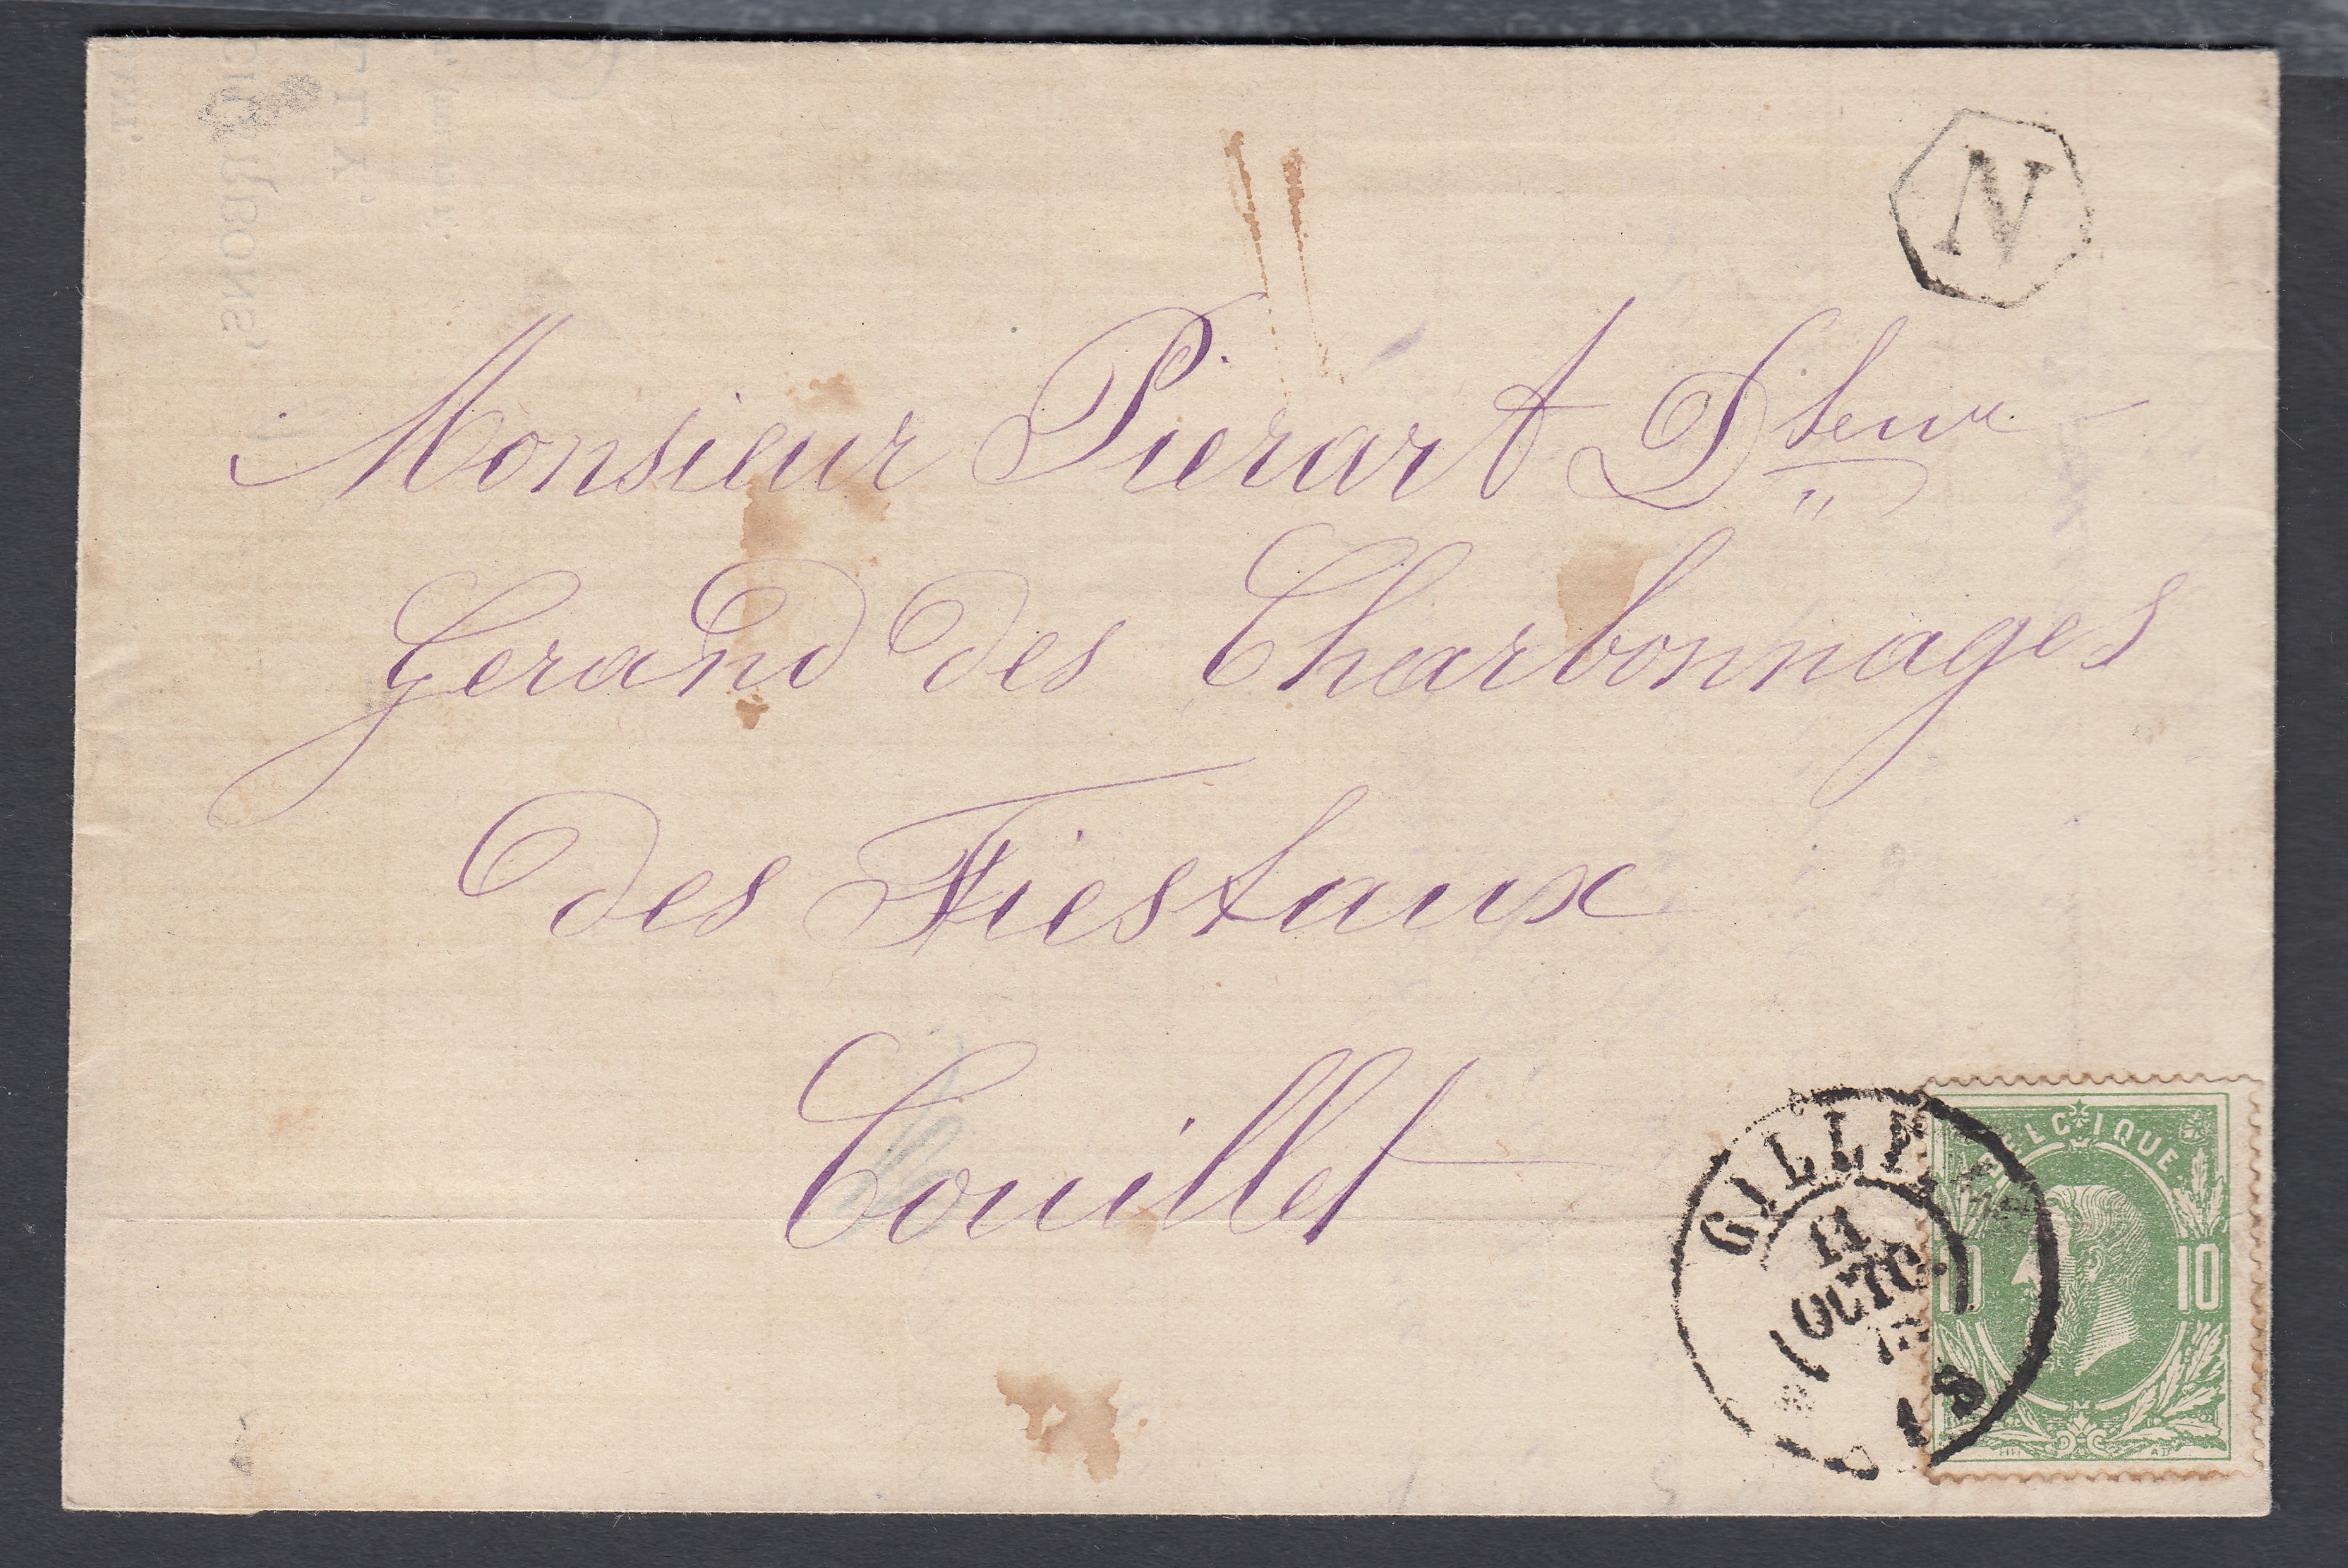 N
Monsieur Pierart Dteur
Gerand des Charbonnages
des Fiestaux
Couillet
GILLY
11
OCTO.
BELGIQUE
10 10